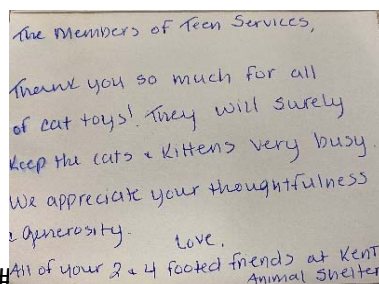 The Members of Teen Services,
Thank you so much for all
of cat toys! They will surely
keep the cats & kittens very busy.
We appreciate your thoughtfulness
& generosity.
Love,
All of your 2 & 4 footed friends at Kent
Animal Shelter